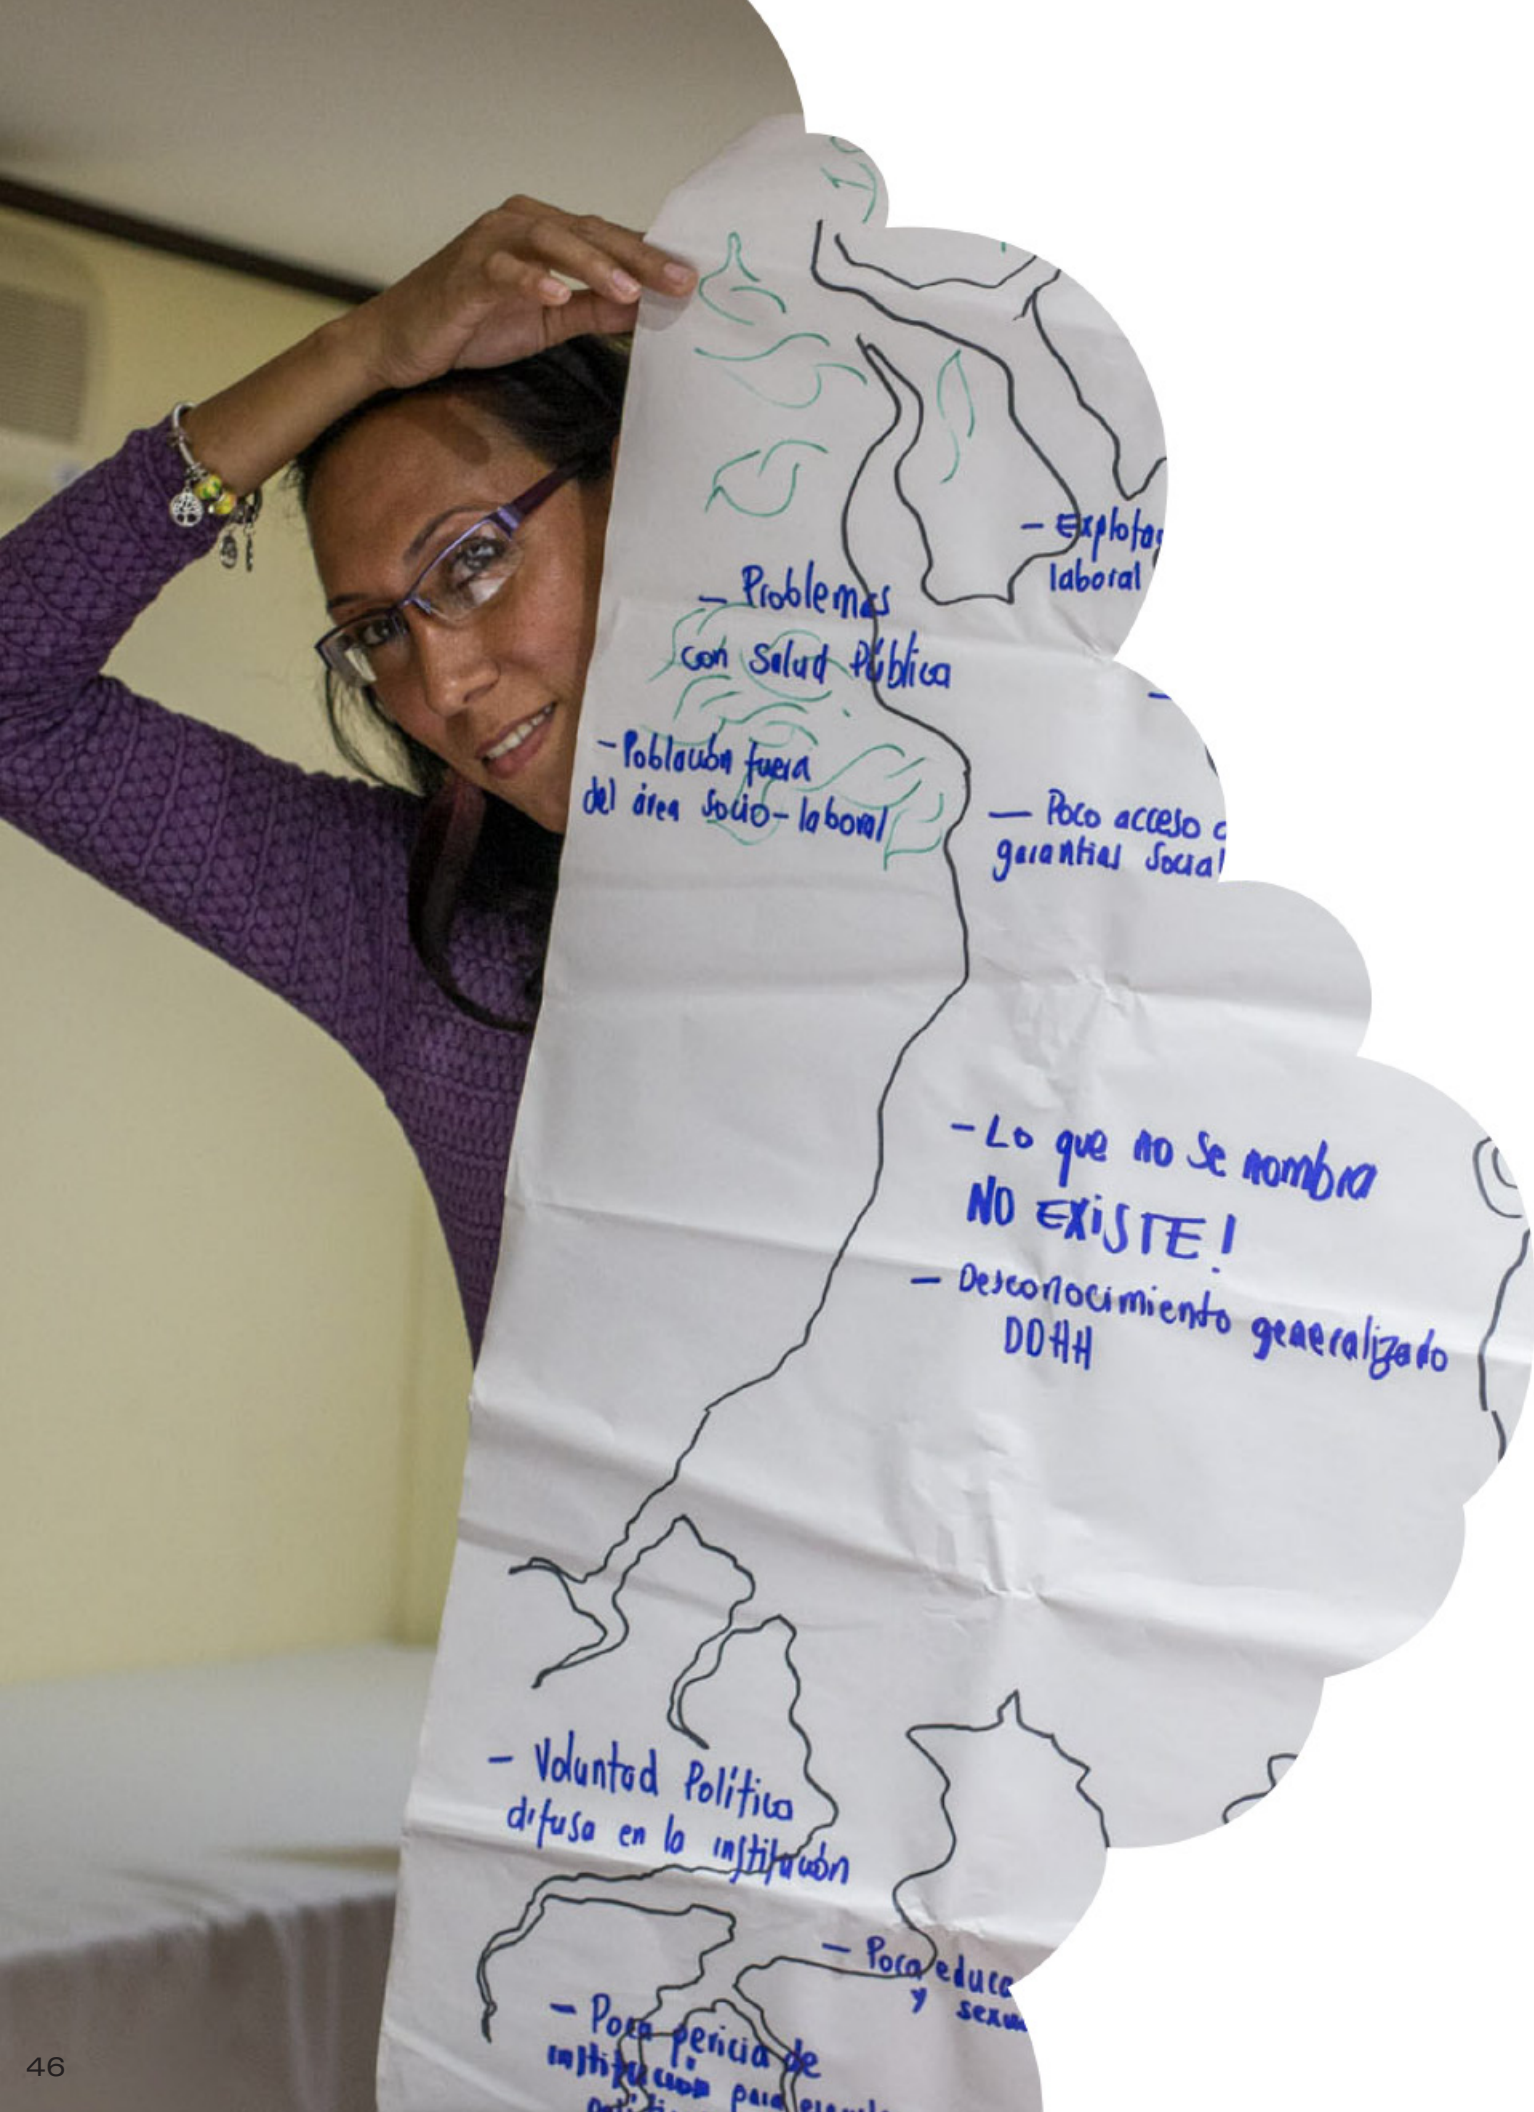 - Explota
laboral
- Problemas
con Salud Pública
- Población fuera
del área Socio-laboral
- Poco acceso
garantías Social
- Lo que no se nombra
NO EXISTE!
- Desconocimiento generalizado
DDHH
- Voluntad Política
difusa en la institución
- Poca educa
y sexu
- Poca pericia de
institución para
46